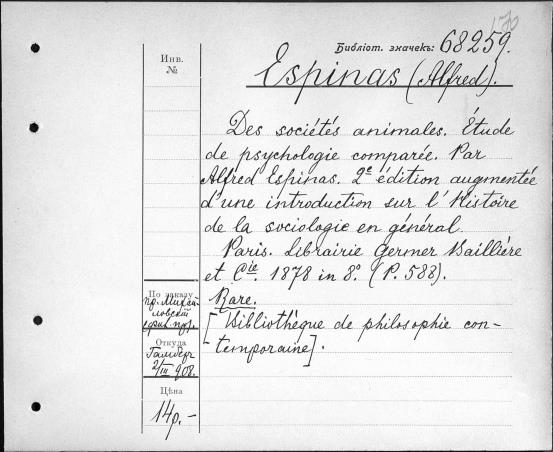 170
Библіот. значекъ: 68259.
Инв.
№
Espinas (Alfred).
Des sociétés animales. Étude
de psychologie comparée. Par
Alfred Espinas. 2e édition augmentée
d'une introduction sur l'Histoire
de la sociologie en général.
Paris. Librairie Germer Baillière
et Cie. 1878 in 8°. (P. 588).
Rare.
[Bibliothèque de philosophie con-
temporaine].
По заказу
пр. Михай-
ловскій
Откуда
Гамберъ
2/III 908.
Цѣна
14р.-